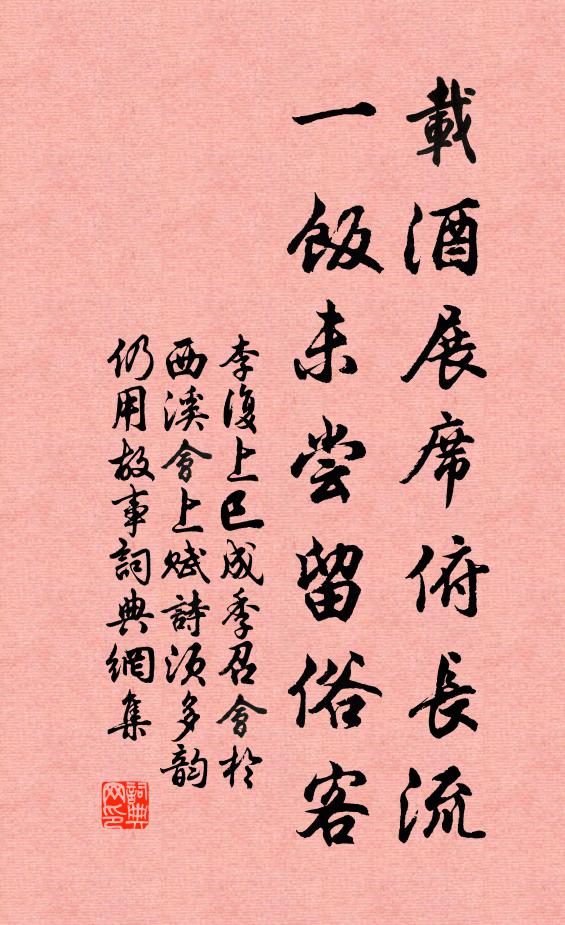 載酒展席俯長流
一飯未尝留俗客
李復上巳成季召會於
西溪會上赋詩須多韵
仍用故事詞典網集
詞典网印